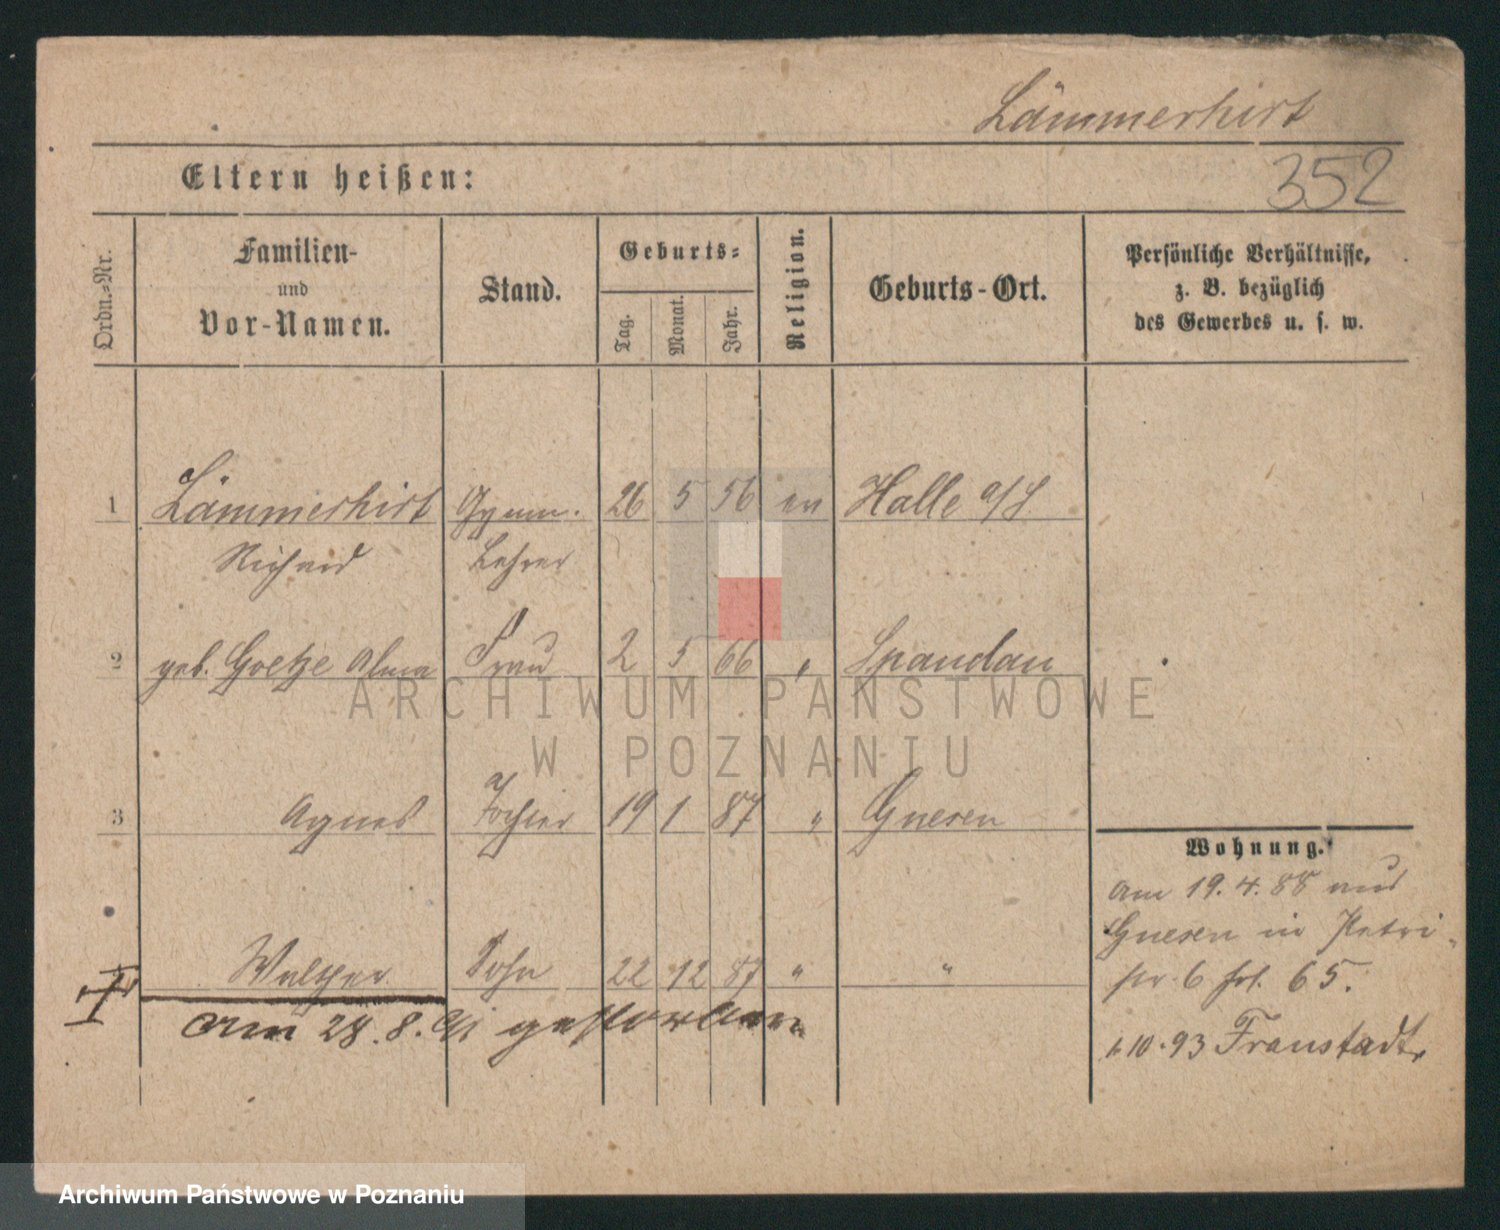 Lämmerhirt
352
Eltern heißen:
Ordn.-Nr.
Familien-
und
Vor-Namen.
Stand.
Geburts-
Tag.
Monat.
Jahr.
Religion.
Geburts-Ort.
Persönliche Verhältnisse,
z. B. bezüglich
des Gewerbes u. s. w.
1 Lämmerhirt Gymn. 26 5 56 ev Halle a/S
Richard Lehrer
2 geb. Goetze Alma Frau 2 5 66 " Spandau
3 Agnes Tochter 19 1 87 " Gnesen
Walther Sohn 22 12 87 " "
am 28. 8. 91 gestorben
Wohnung.
am 19. 4. 88 aus
Gnesen in Petri-
str 6 fol. 65.
1. 10. 93 Fraustadt.
ARCHIWUM PAŃSTWOWE
W POZNANIU
Archiwum Państwowe w Poznaniu